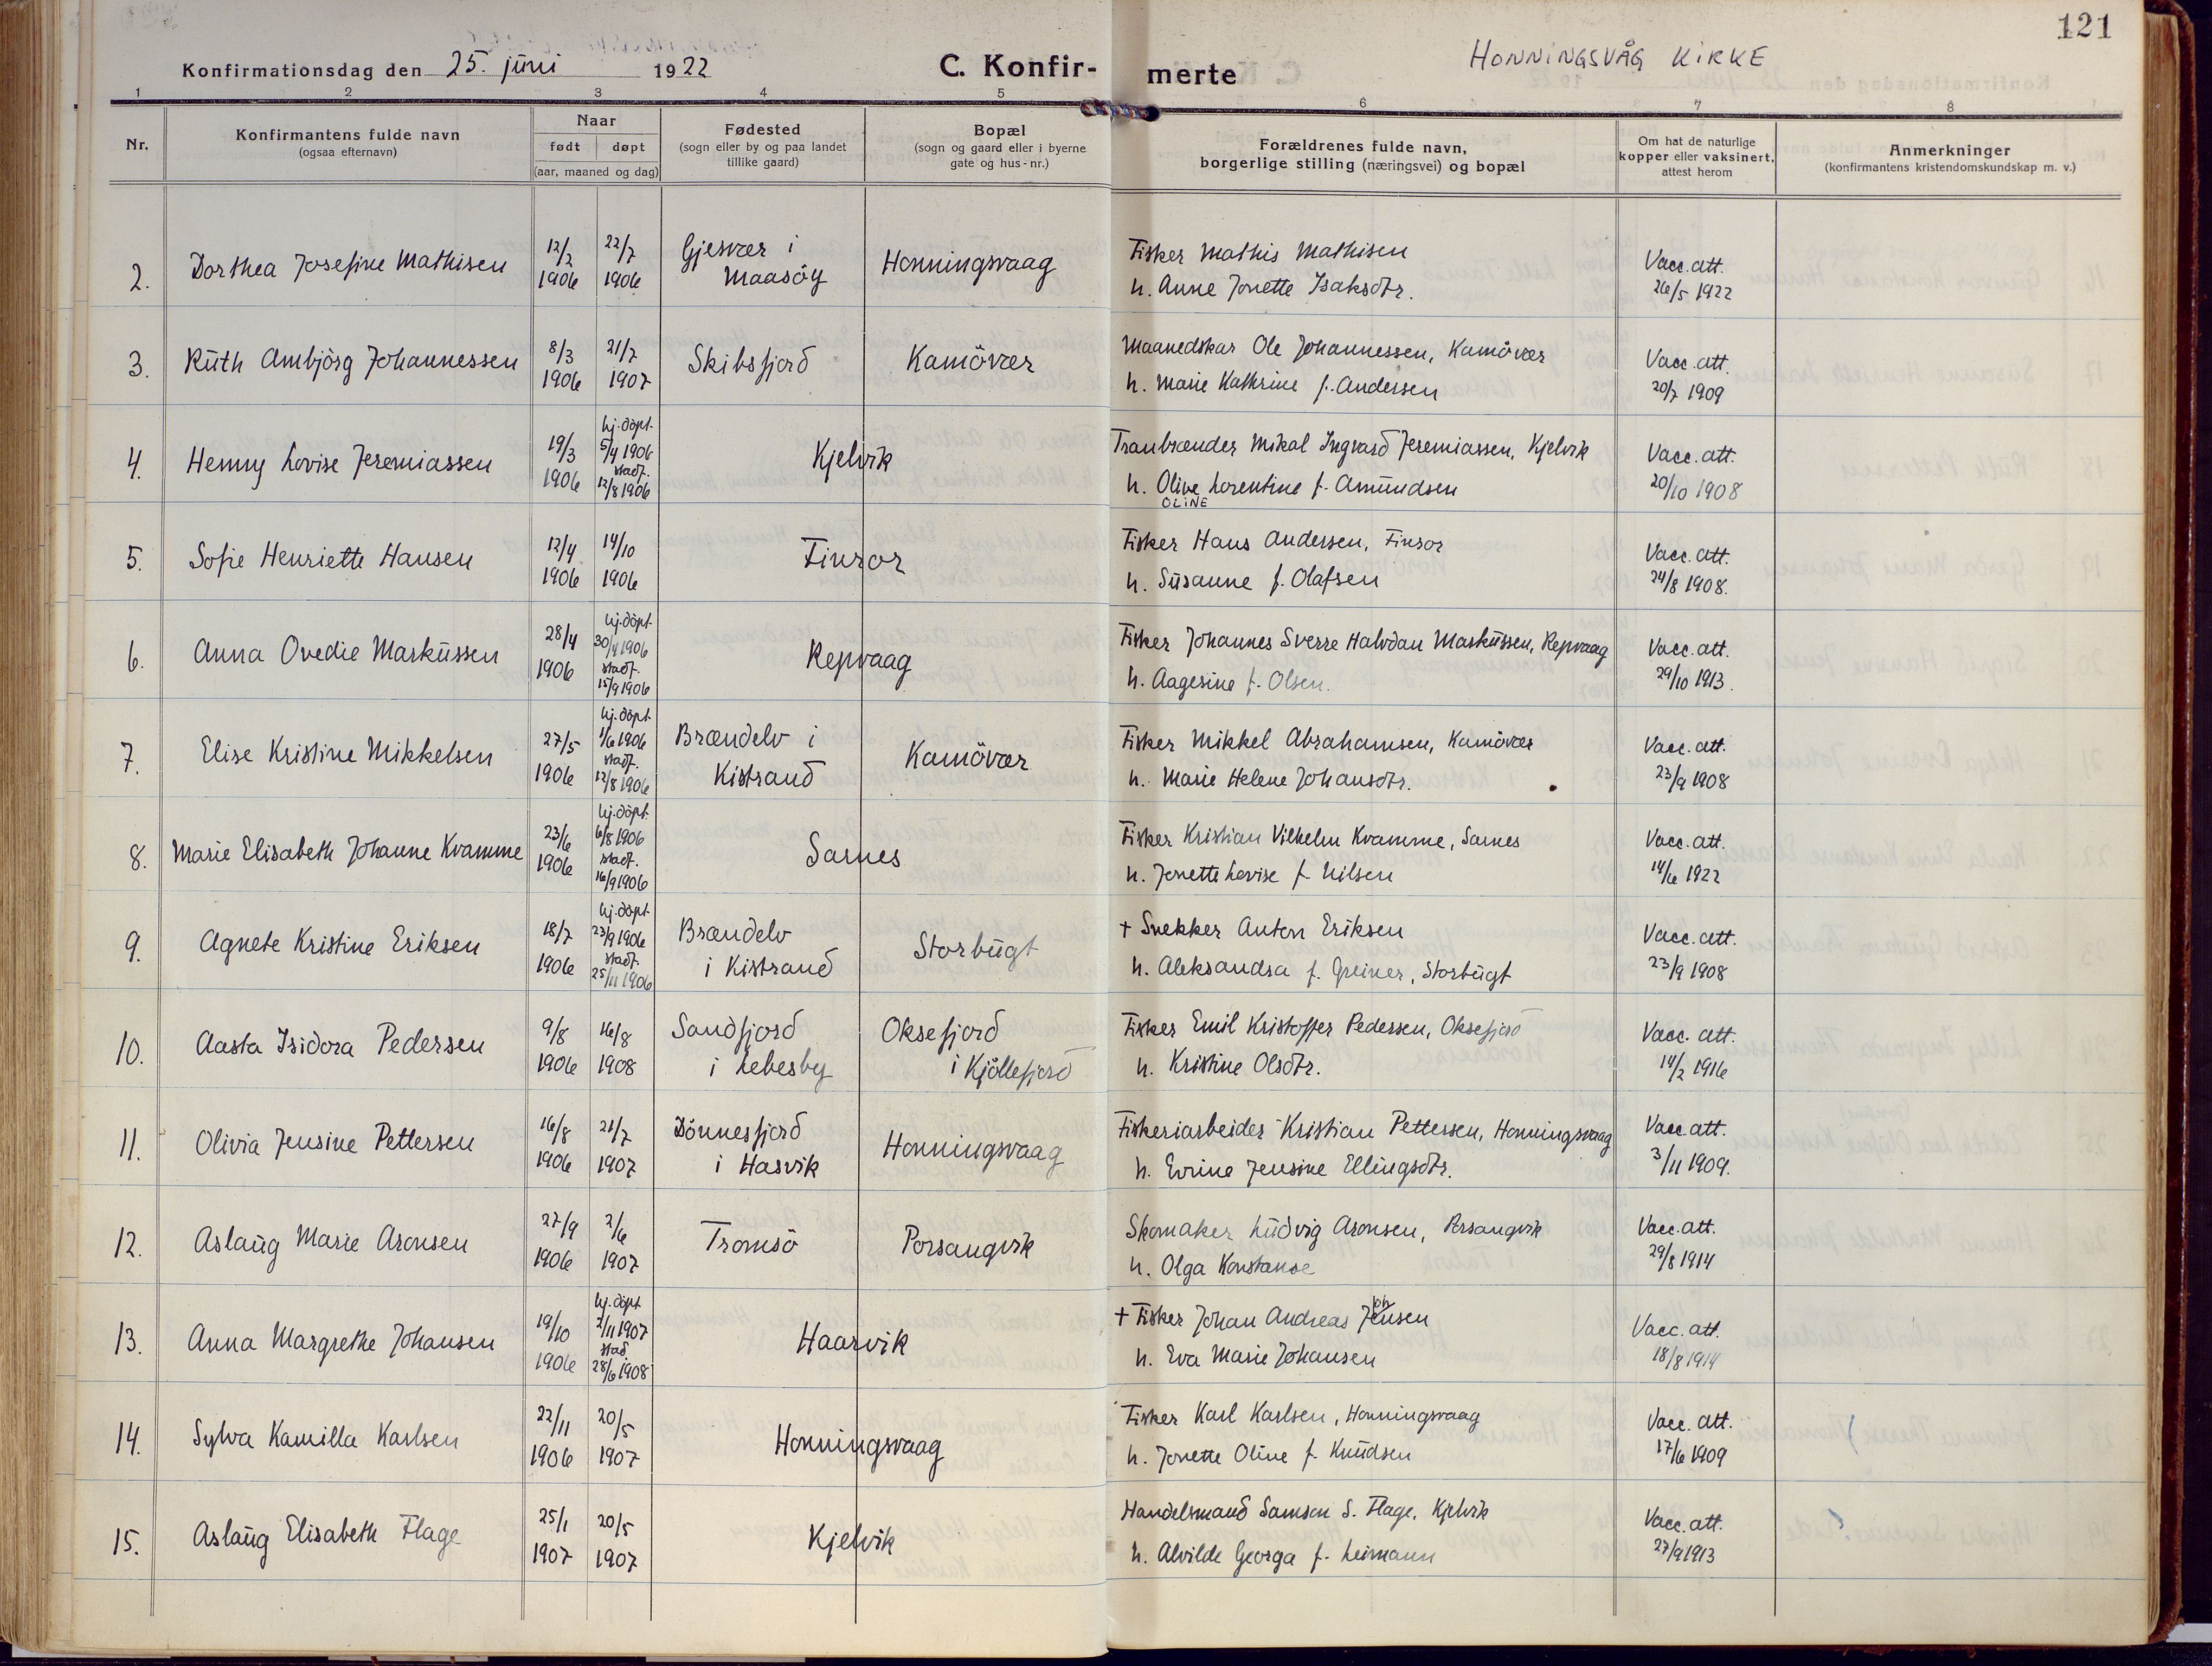 121
HONNINGSVÅG KIRKE
Konfirmationsdag den 25. juni 1922
C. Konfir- merte
1 2 3 4 5 6 7 8
Nr.
Konfirmantens fulde navn
(ogsaa efternavn)
Naar
født døpt
(aar, maaned og dag)
Fødested
(sogn eller by og paa landet
tillike gaard)
Bopæl
(sogn og gaard eller i byerne
gate og hus-nr.)
Forældrenes fulde navn,
borgerlige stilling (næringsvei) og bopæl
Om hat de naturlige
kopper eller vaksinert,
attest herom
Anmerkninger
(konfirmantens kristendomskundskap m. v.)
2. Dorthea Josefine Mathisen 12/2 1906 22/7 1906 Gjesvær i Maasöy Honningsvaag
Fisker Mathis Mathisen
h. Anne Jonette Isaksdtr.
Vacc. att.
26/5 1922
3. Ruth Ambjörg Johannessen 8/3 1906 21/7 1907 Skibsfjord Kamövær
Maanedskar Ole Johannessen, Kamövær
h. Marie Kathrine f. Andersen
Vacc. att.
20/7 1909
4. Henny Lovise Jeremiassen 19/3 1906 hj.döpt. 5/4 1906 stadf. 12/8 1906 Kjelvik
Tranbrænder Mikal Ingvard Jeremiassen, Kjelvik
h. Olive Lorentine f. Amundsen
OLINE
Vacc. att.
20/10 1908
5. Sofie Henriette Hansen 12/4 1906 14/10 1906 Finsor
Fisker Hans Andersen, Finsor
h. Susanne f. Olafsen
Vacc. att.
24/8 1908.
6. Anna Ovedie Markussen 28/4 1906 hj.döpt. 30/4 1906 stadf. 15/9 1906 Repvaag
Fisker Johannes Sverre Halvdan Markussen, Repvaag
h. Aagesine f. Olsen.
Vacc. att.
29/10 1913.
7. Elise Kristine Mikkelsen 27/5 1906 hj.döpt. 1/6 1906 stadf. 12/8 1906 Brændelv i Kistrand Kamövær
Fisker Mikkel Abrahamsen, Kamövær
h. Marie Helene Johansdtr.
Vacc. att.
23/9 1908
8. Marie Elisabeth Johanne Kvamme 23/6 1906 hj.döpt. 6/8 1906 stadf. 16/9 1906 Sarnes
Fisker Kristian Vilhelm Kvamme, Sarnes
h. Jonette Lovise f. Nilsen
Vacc. att.
14/6 1922
9. Agnete Kristine Eriksen 18/7 1906 hj.döpt. 23/9 1906 stadf. 25/11 1906 Brændelv i Kistrand Storbugt
+ Snekker Anton Eriksen
h. Aleksandra f. Greiner, Storbugt
Vacc. att.
23/9 1908
10. Aasta Isidora Pedersen 9/8 1906 16/8 1908 Sandfjord i Lebesby Oksefjord i Kjöllefjord
Fisker Emil Kristoffer Pedersen, Oksefjord
h. Kristine Olsdtr.
Vacc. att.
14/2 1916
11. Olivia Jensine Pettersen 16/8 1906 21/7 1907 Dönnesfjord i Hasvik Honningsvaag
Fiskeriarbeider Kristian Pettersen, Honningsvaag
h. Evrine Jensine Ellingsdtr.
Vacc. att.
3/11 1909.
12. Aslaug Marie Aronsen 27/9 1906 2/6 1907 Tromsö Porsangvik
Skomaker Ludvig Aronsen, Porsangvik
h. Olga Konstanse
Vacc. att.
29/8 1914
13. Anna Margrethe Johansen 19/10 1906 hj.döpt 2/11 1907 stad. 28/6 1908 Haarvik
+ Fisker Johan Andreas Jensen
oh
h. Eva Marie Johansen
Vacc. att.
18/8 1914
14. Sylva Kamilla Karlsen 22/11 1906 20/5 1907 Honningsvaag
Fisker Karl Karlsen, Honningsvaag
h. Jonette Oline f. Knudsen
Vacc. att.
17/6 1909
15. Aslaug Elisabeth Flage 25/1 1907 20/5 1907 Kjelvik
Handelsmand Samson S. Flage, Kjelvik
h. Alvilde Georga f. Leimann
Vacc. att.
27/9 1913